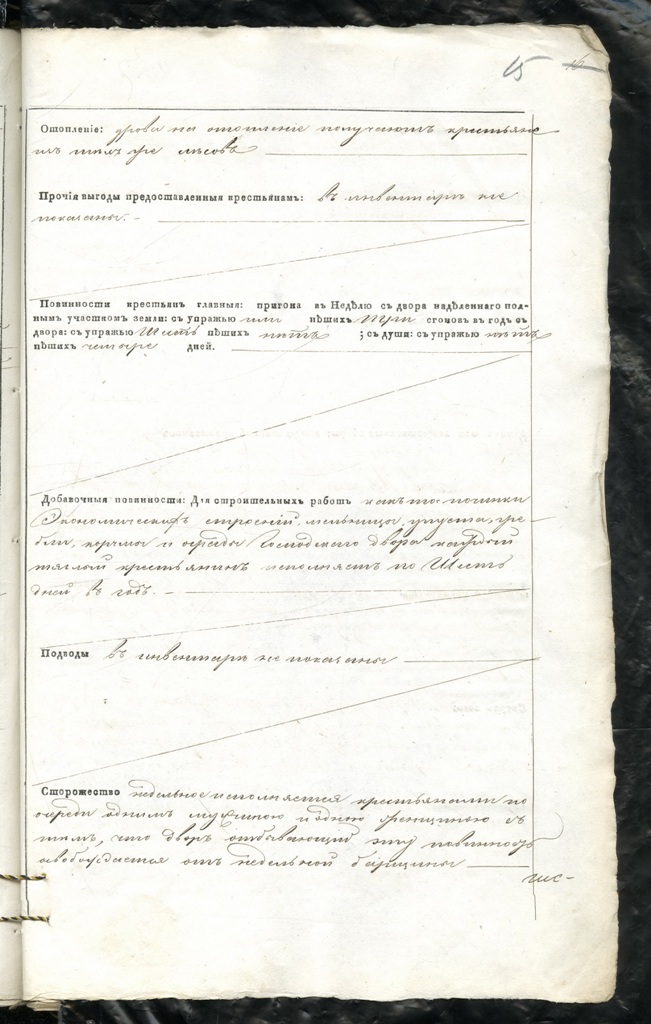 15 16
Отопленіе: дрова на отопленіе получаютъ крестьяне
изъ тѣхъ же лѣсовъ
Прочія выгоды предоставленныя крестьянамъ: Въ инвентарѣ не
показаны.
Повинности крестьян главныя: пригона въ Недѣлю съ двора надѣленнаго пол-
нымъ участкомъ земли: съ упражью или пѣшихъ три сгоновъ въ годъ съ
двора: съ упражью Шесть пѣшихъ ; съ души: съ упражью
пѣшихъ четыре дней.
Добавочныя повинности: Для строительныхъ работъ какъ то: починки
Экономическихъ строеній, мельницы, упуста, гре-
бли, корчмы и ограды Господскаго двора каждый
тяглый крестьянинъ исполняетъ по Шесть
дней въ годъ.
Подводы въ инвентарѣ не показаны
Сторожество недельное исполняется крестьянами по
очереди однимъ мужчиною и одною женщиною съ
тѣмъ, что дворъ отбывающій эту повинность
освобождается отъ недельной барщины